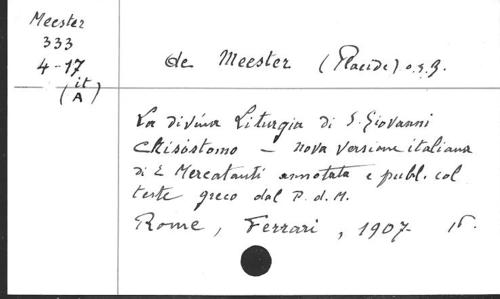 Meester
333
4-17
it
(A)
de Meester (Placide) o.s.B.
La divina Liturgia di S. Giovanni
Chisostomo – nova versione italiana
di E Mercatanti annotata e publ. col
teste greco dal P. d. M.
Rome, Ferrari, 1907.